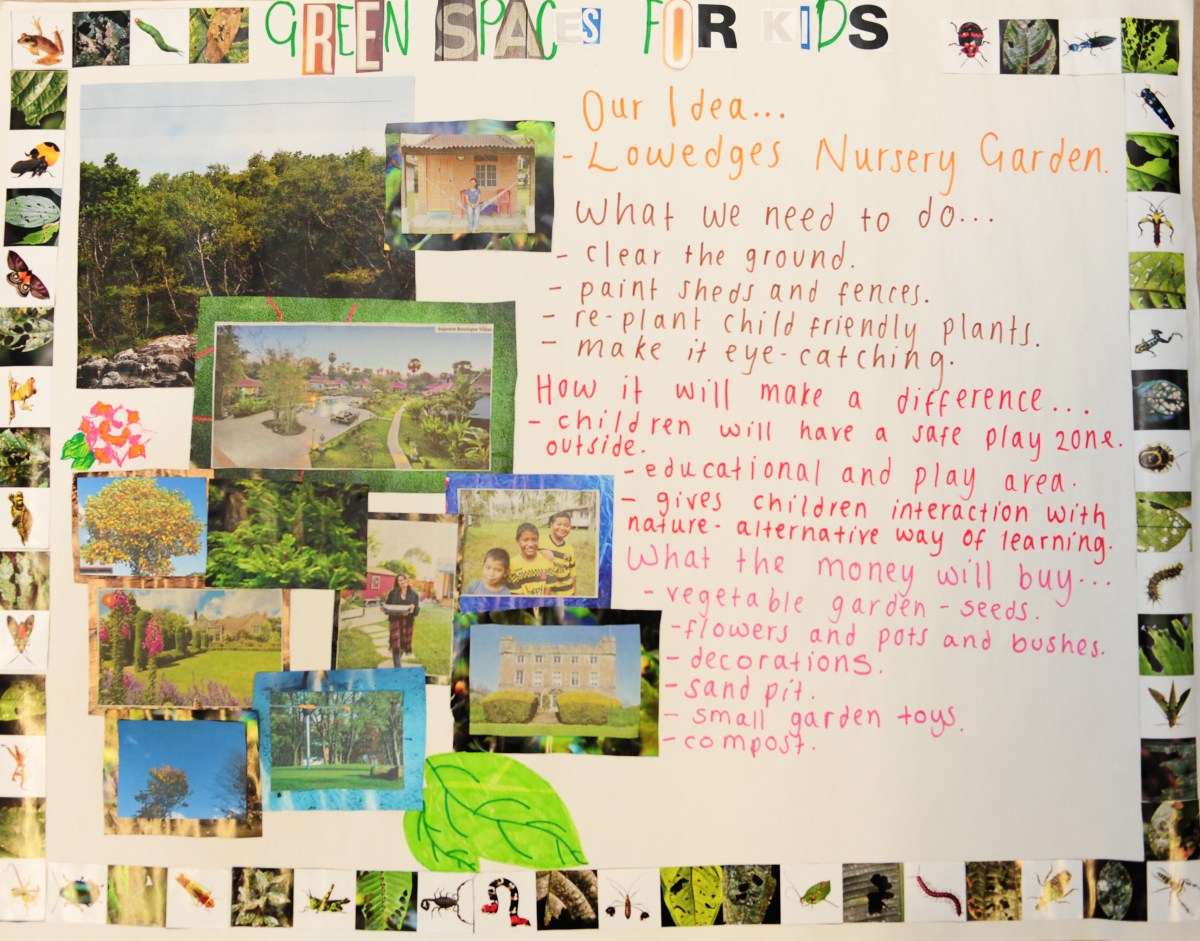 GREEN SPACES FOR KIDS
Our Idea...
- Lowedges Nursery Garden.
What we need to do...
- clear the ground.
- paint sheds and fences.
- re-plant child friendly plants.
- make it eye-catching.
How it will make a difference...
- children will have a safe play zone.
outside.
- educational and play area.
- gives children interaction with
nature - alternative way of learning.
What the money will buy...
- vegetable garden - seeds.
- flowers and pots and bushes.
- decorations.
- sand pit.
- small garden toys.
- compost.